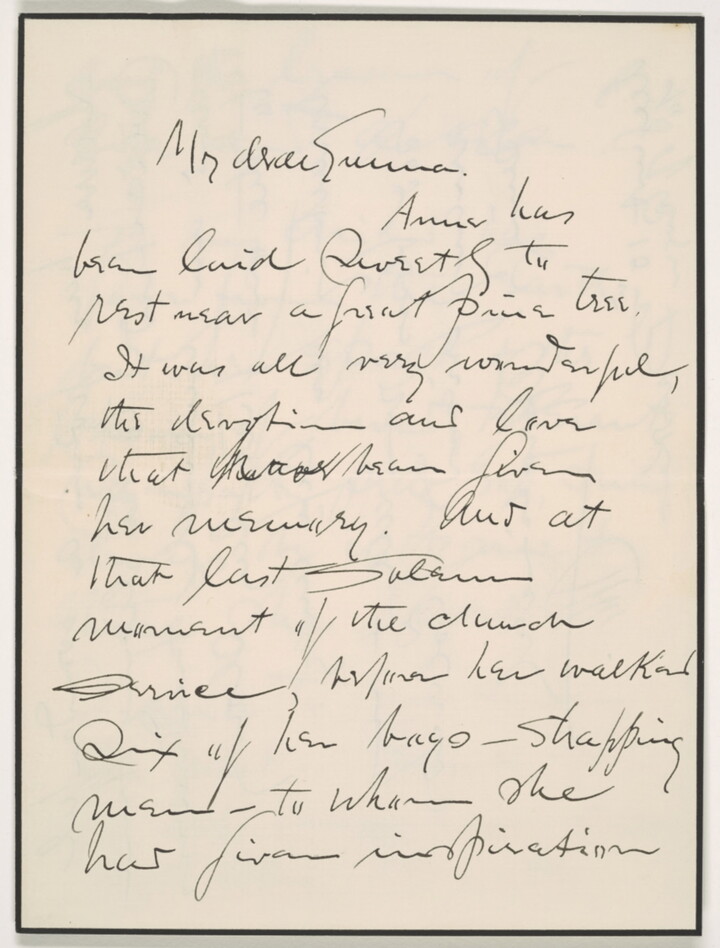 My dear Emma.
Anne has
been laid sweetly to
rest near a great pine tree.
It was all very wonderful,
the devotion and love
that has been given
her memory. And at
that last solemn
moment of the church
service, before her walked
six of her boys – strapping
men – to whom she
had given inspiration